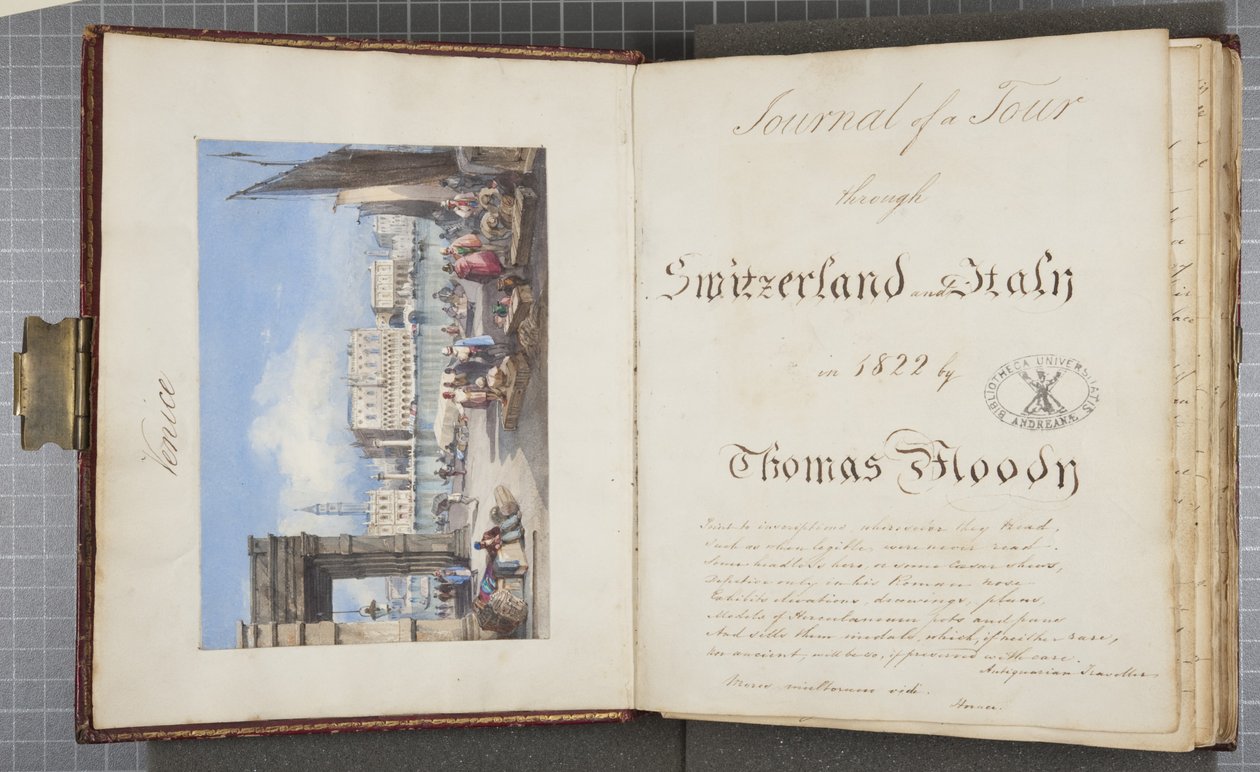 Venice
Journal of a Tour
through
Switzerland and Italy
in 1822 by
BIBLIOTHECA UNIVERSITATIS
ANDREANÆ
Thomas Moody
Point to inscriptions, wheresoever they tread,
Such as when legible, were never read.
Some headless hero, or some Cæsar shews,
Defective only in his Roman nose
Exhibits elevations, drawings, plans,
Models of Herculaneum pots and pans
And sells them medals, which, if neither rare,
Nor ancient, will be so, if preserved with care.
Antiquarian Traveller
Mores multorum vide.
Horace.